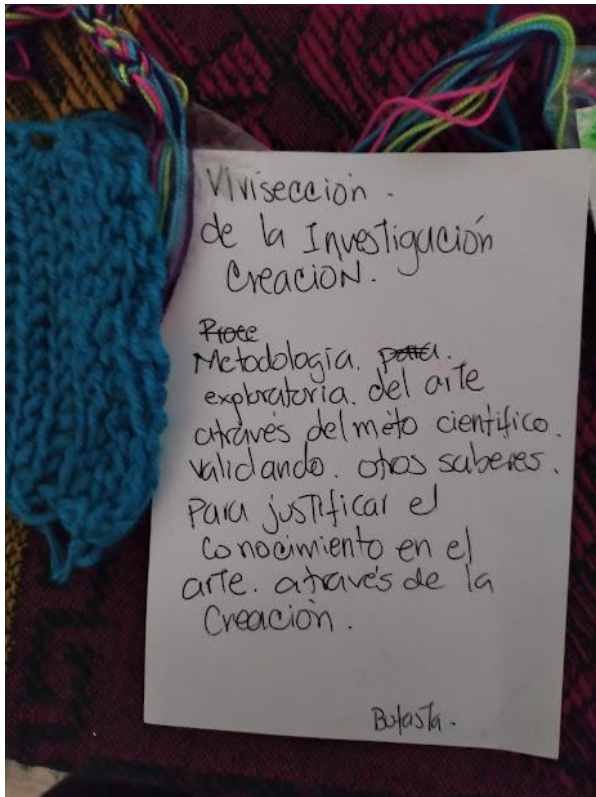 Vivisección.
de la Investigación
Creación.
Proce
Metodología. para.
exploratoria. del arte
através del méto científico.
validando. otros saberes.
Para justificar el
conocimiento en el
arte. através de la
Creación.